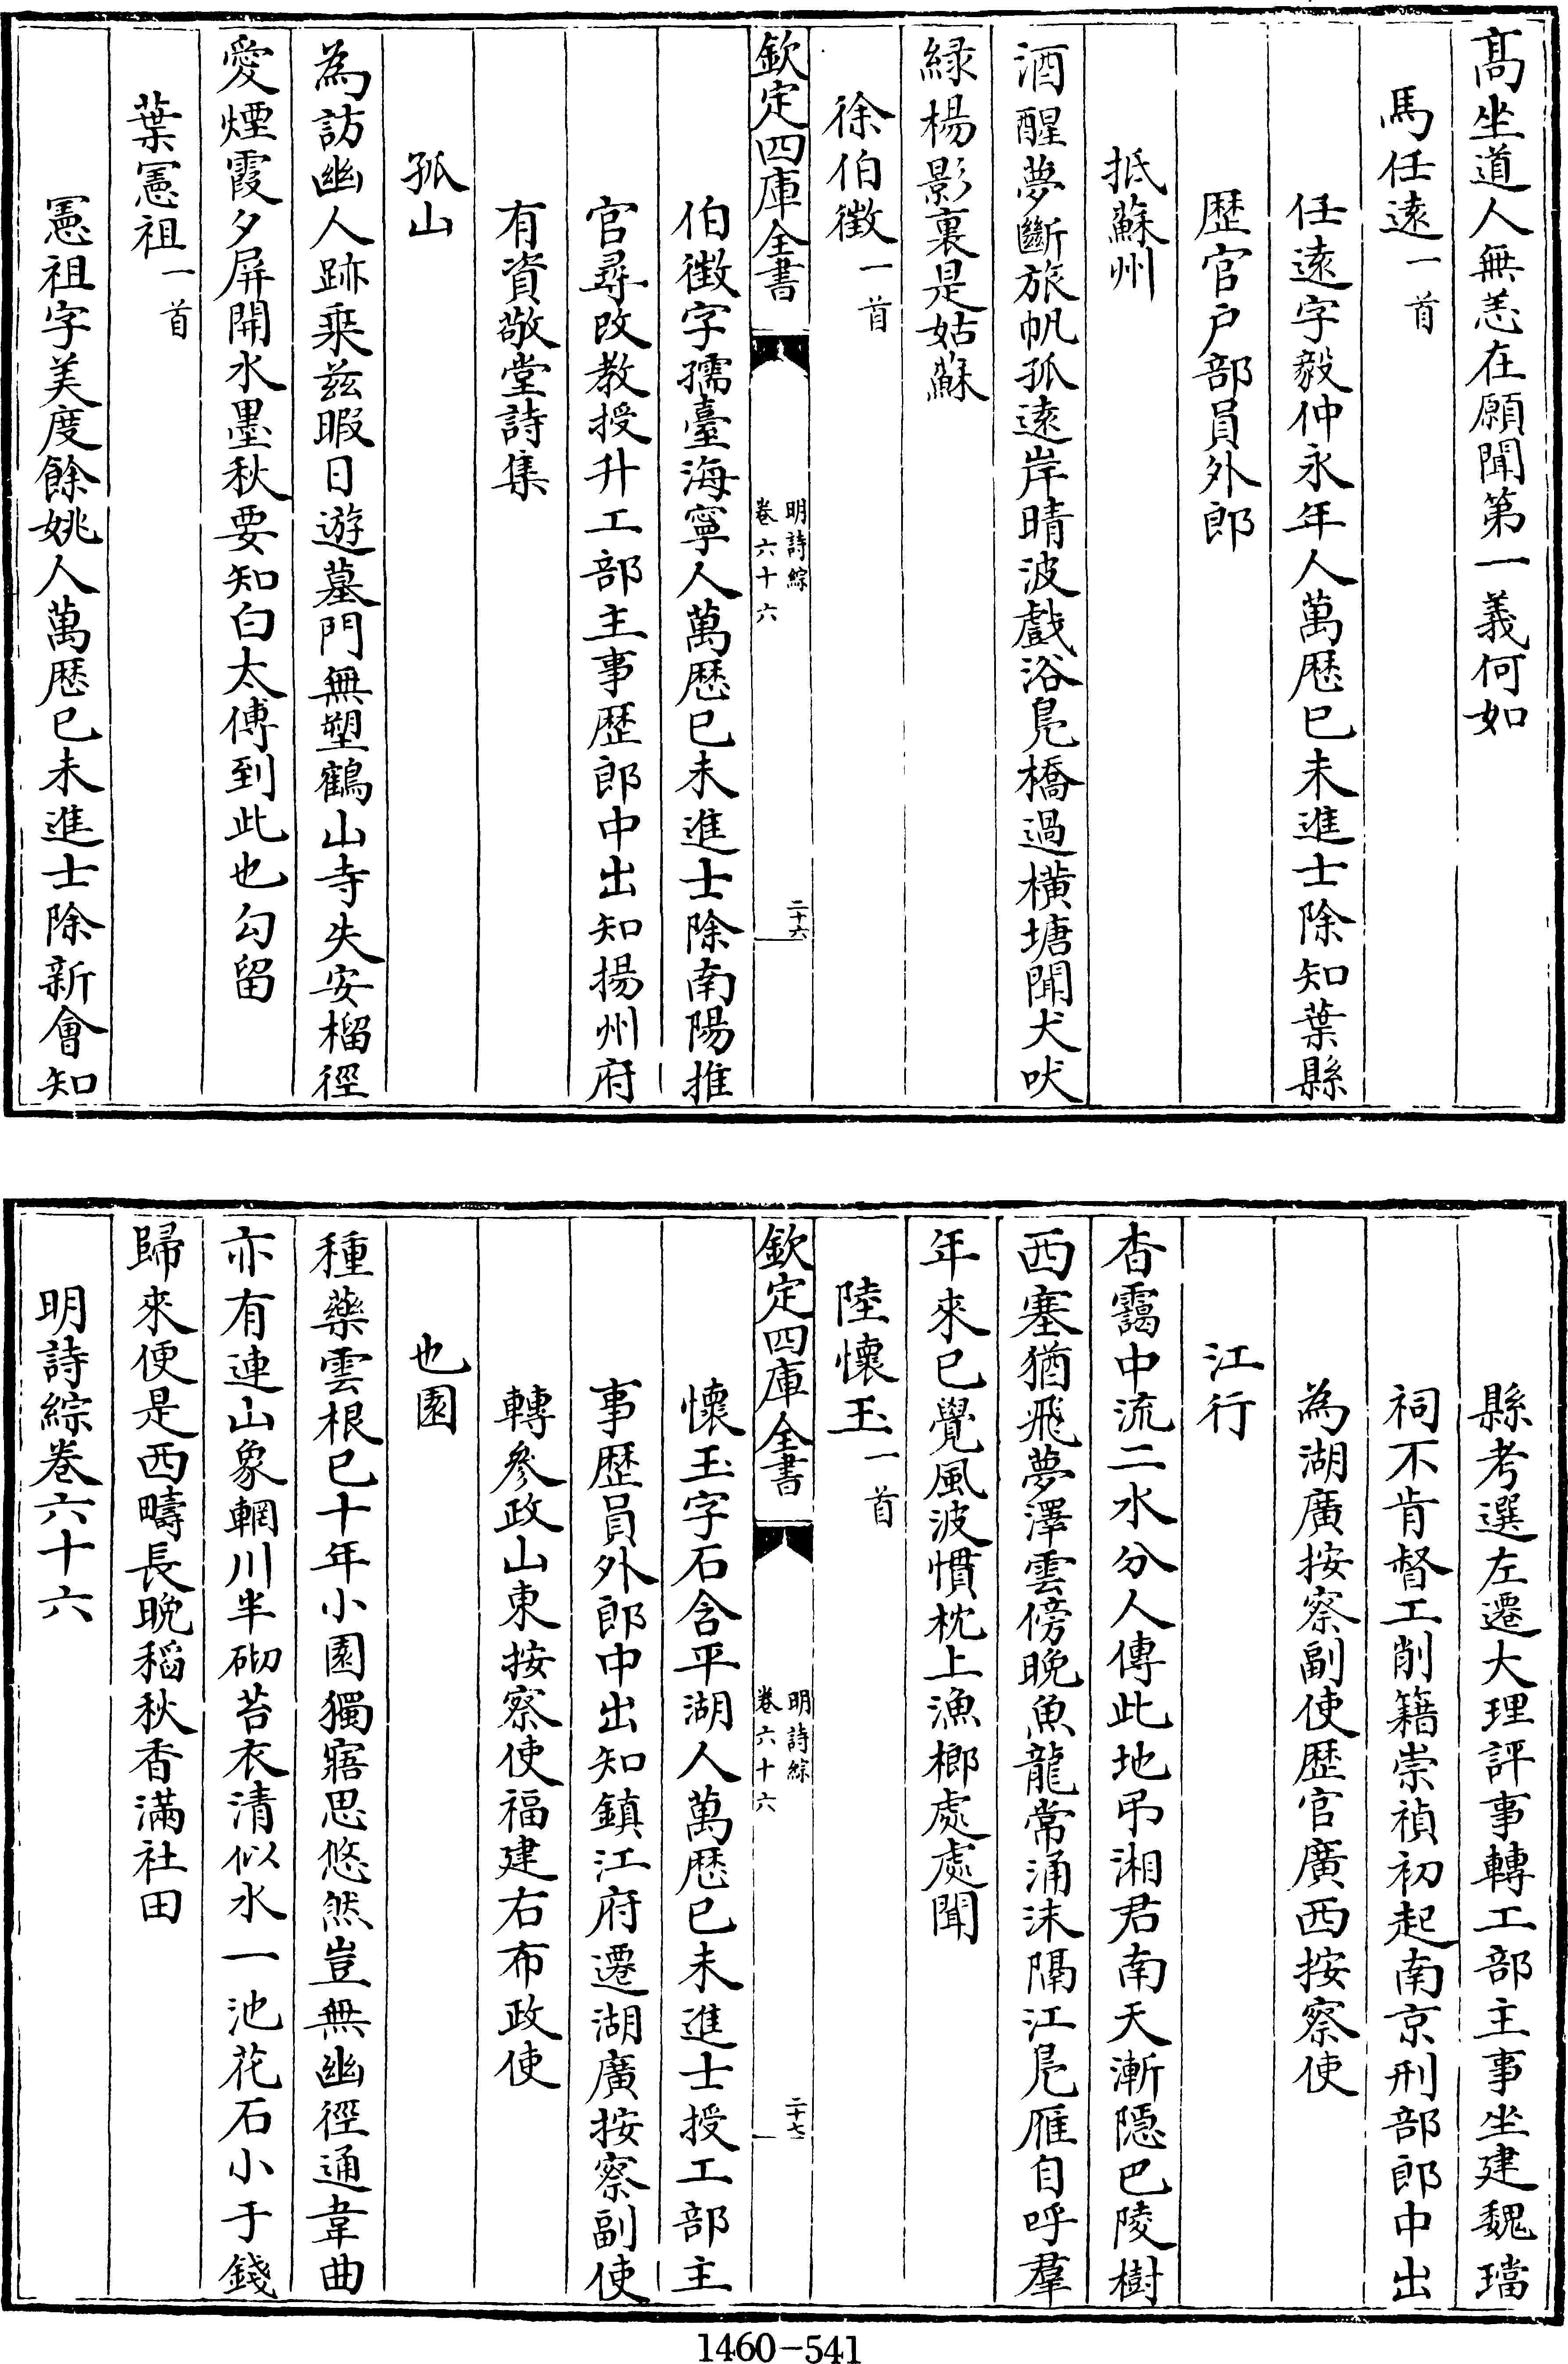 髙坐道人無恙在願聞第一義何如
馬任逺一首
任逺字毅仲永年人萬厯已未進士除知葉縣
歴官户部員外郎
抵蘇州
酒醒夢斷旅帆孤逺岸晴波戲浴鳬橋過橫塘聞犬吠
緑楊影裏是姑蘇
徐伯徵一首
欽定四庫全書
明詩綜
卷六十六
二十六
伯徵字孺臺海寧人萬厯已未進士除南陽推
官尋改教授升工部主事歴郎中出知揚州府
有資敬堂詩集
孤山
為訪幽人跡乗兹暇日遊墓門無塑鶴山寺失安榴徑
愛煙霞夕屏開水墨秋要知白太傅到此也勾留
葉憲祖一首
憲祖字美度餘姚人萬厯已未進士除新會知
縣考選左遷大理評事轉工部主事坐建魏璫
祠不肯督工削籍崇禎初起南京刑部郎中出
為湖廣按察副使歴官廣西按察使
江行
杳靄中流二水分人傳此地弔湘君南天漸隠巴陵樹
西塞猶飛夢澤雲傍晚魚龍常涌沫隔江鳬雁自呼羣
年來已覺風波慣枕上漁榔處處聞
陸懷玉一首
欽定四庫全書
明詩綜
卷六十六
二十七
懷玉字石含平湖人萬厯已未進士授工部主
事歴員外郎中出知鎮江府遷湖廣按察副使
轉參政山東按察使福建右布政使
也園
種藥雲根已十年小園獨寤思悠然豈無幽徑通韋曲
亦有連山象輞川半砌苔衣清似水一池花石小于錢
歸來便是西疇長晚稻秋香滿社田
明詩綜卷六十六
1460-541